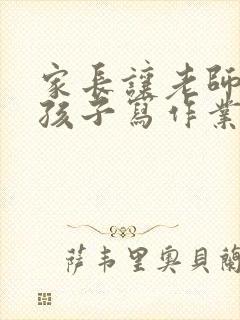 家長讓老師
孩子寫作業
萨韦里奧貝蘭